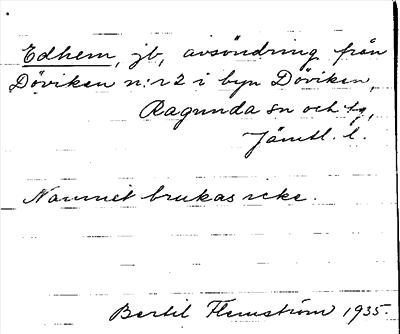 Edhem, jb, avsöndring från
Döviken n:r 2 i byn Döviken,
Ragunda sn och tg,
Jämtl. l.
Namnet brukas icke.
Bertil Flemström 1935.